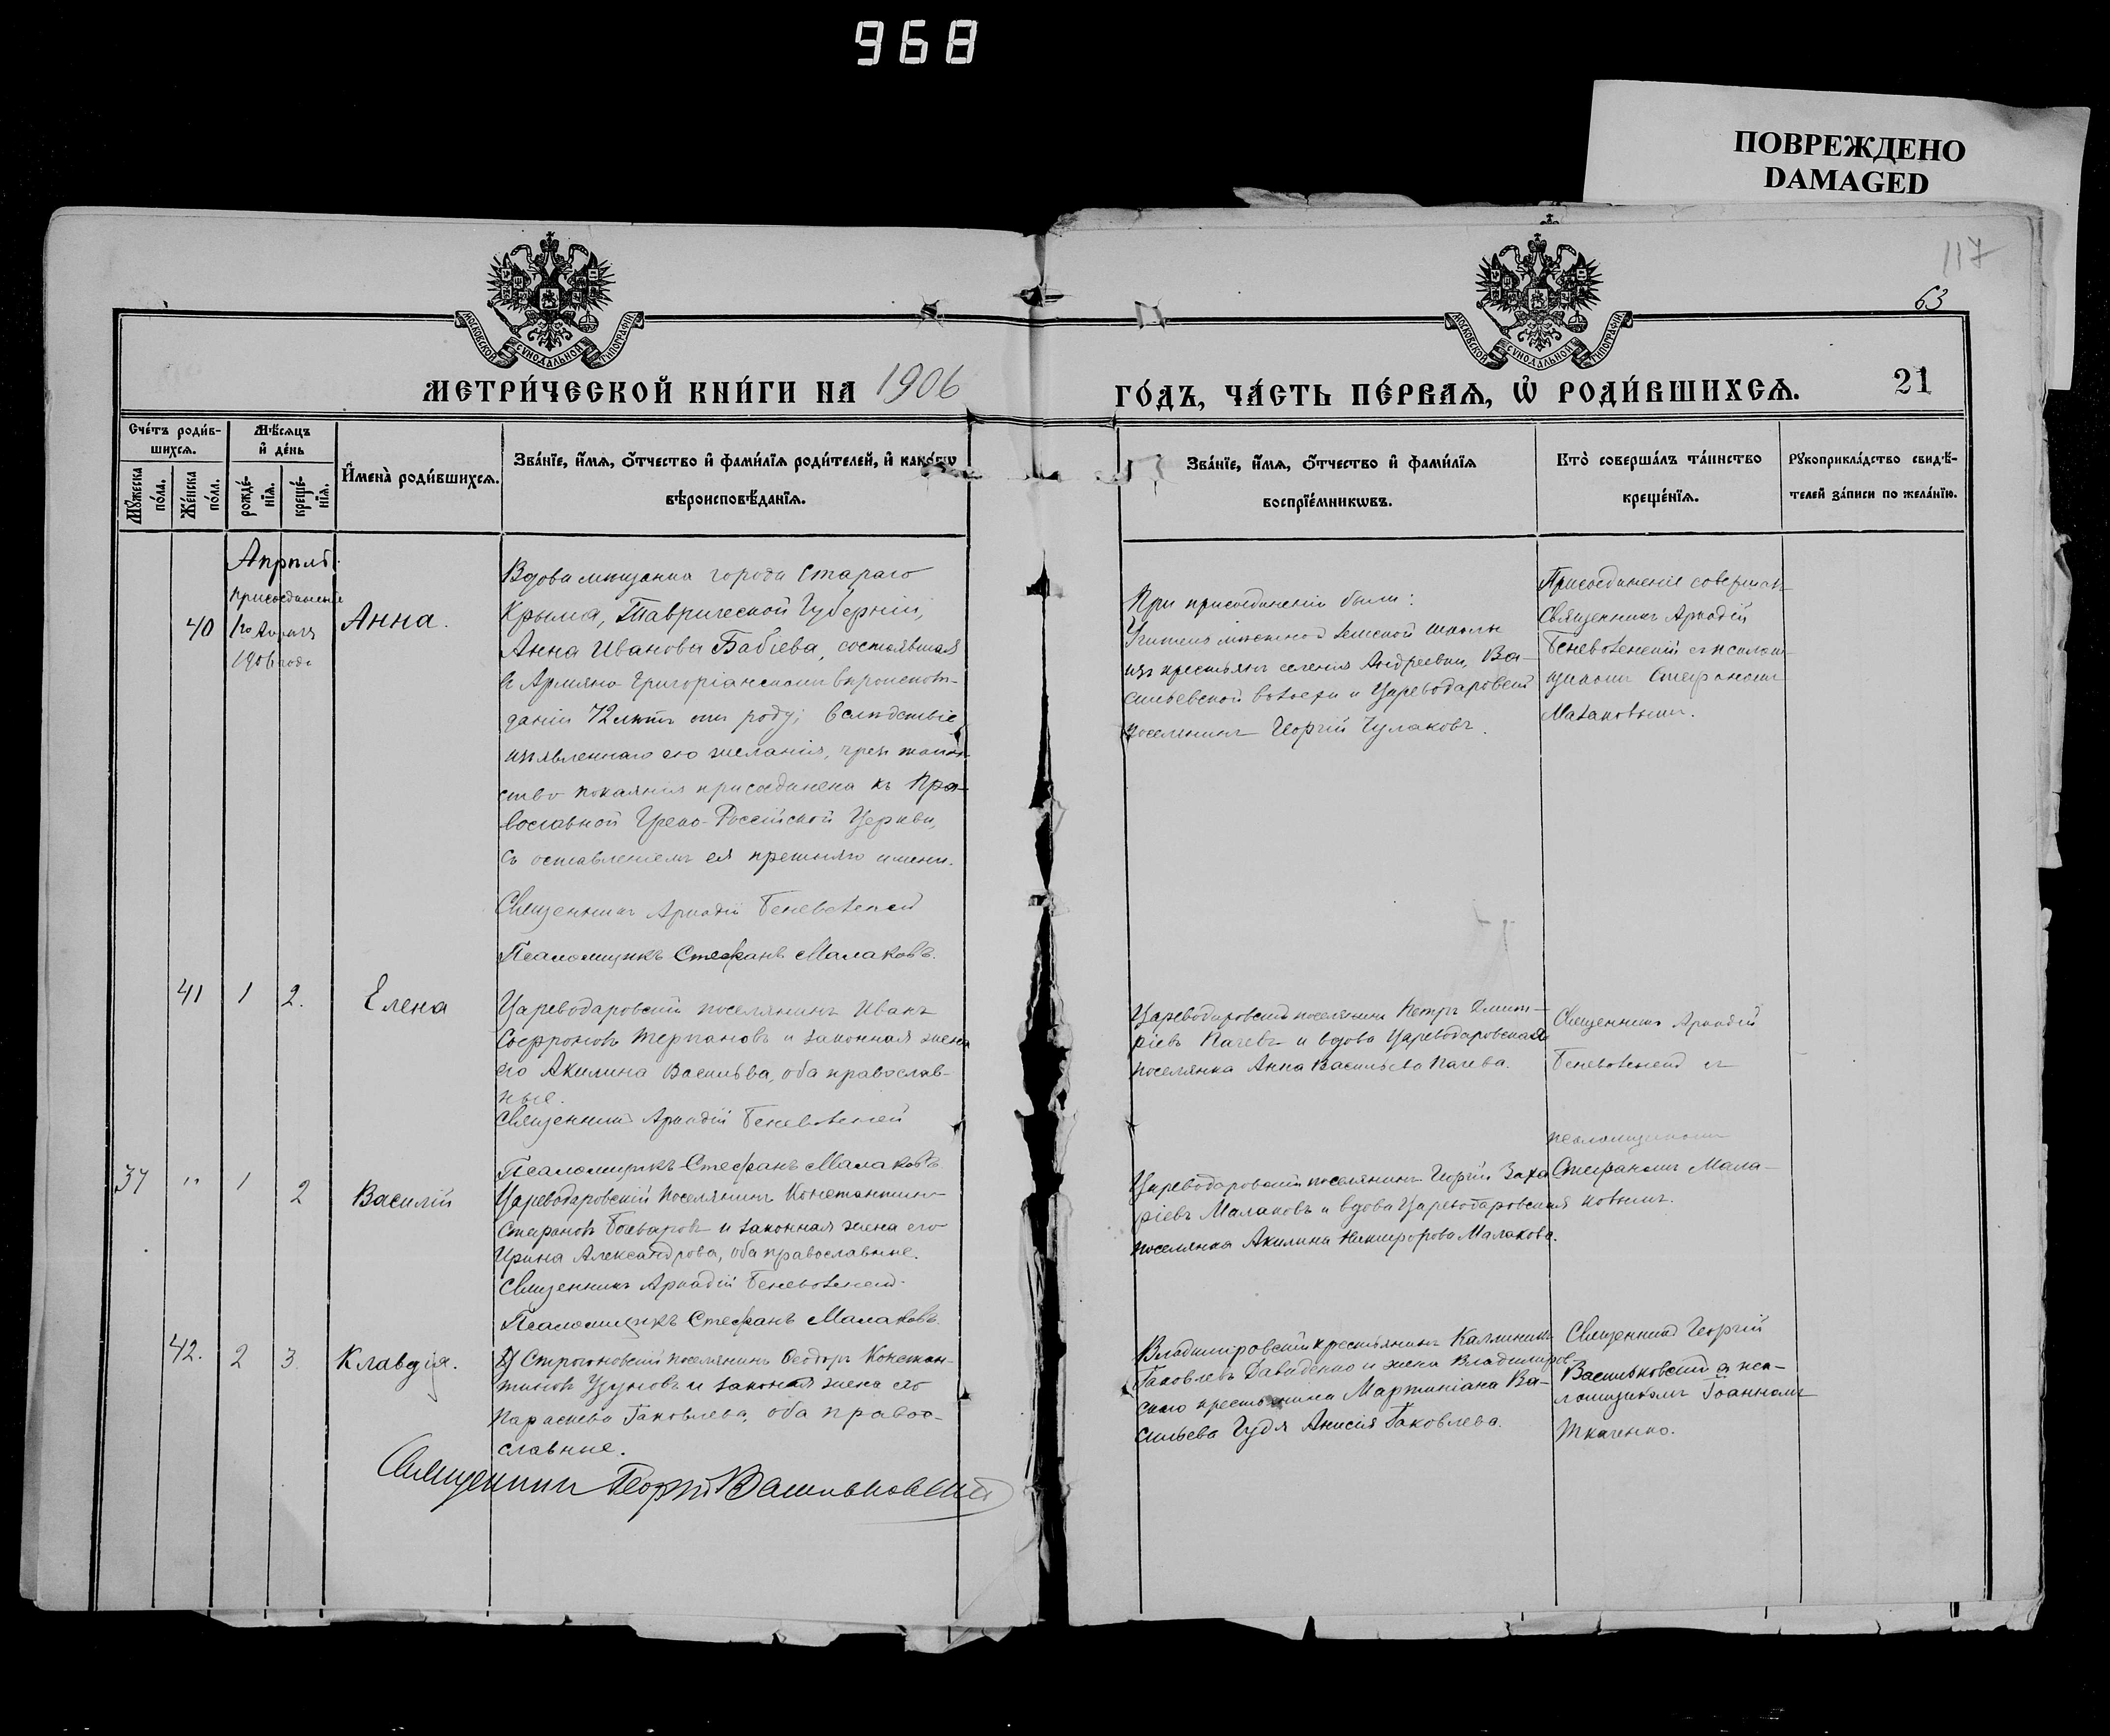 968
ПОВРЕЖДЕНО
DAMAGED
117
63
МОСКОВСКОЙ СѴНОДАЛЬНОЙ ТИПОГРАФІИ
МОСКОВСКОЙ СѴНОДАЛЬНОЙ ТИПОГРАФІИ
МЕТРИ́ЧЕСКОЙ КНИ́ГИ НА 1906
ГО́ДЪ, ЧА́СТЬ ПЕ́РВАѦ, Ѡ҆ РОДИ́ВШИХСѦ. 21
Сче́тъ роди́в-
шихсѧ.
Мꙋ́жеска по́ла.
Же́нска по́ла.
Мѣ́сѧцъ
и҆ де́нь
рожде́-
нїѧ.
креще́-
нїѧ.
И҆мена̀ роди́вшихсѧ.
Зва́нїе, и҆́мѧ, ѻ҆́тчество и҆ фами́лїѧ роди́телей, и҆ како́гѡ
вѣроисповѣ́данїѧ.
Зва́нїе, и҆́мѧ, ѻ҆́тчество и҆ фами́лїѧ
воспрїе́мникѡвъ.
Кто̀ соверша́лъ та́инство
креще́нїѧ.
Рꙋкоприкла́дство свидѣ́-
телей за́писи по жела́нїю.
Апрѣль.
присоединенiе
40
1го Апрѣля
1906 года
Анна.
Вдова мѣщанка города Стараго
Крыма, Таврической Губерніи,
Анна Иванова Бабіева, состоявшая
въ Армяно-Григоріанскомъ вѣроисповѣ-
даніи 72 лѣтъ отъ роду; вслѣдствіе
изъявленнаго ею желанія, чрезъ таин-
ство покаянія присоединена къ Пра-
вославной Греко-Россійской Церкви,
съ оставленіемъ ея прежняго имени.
Священникъ Аркадій Беневоленскій
Псаломщикъ Стефанъ Малаковъ.
При присоединеніи были:
Учитель земской школы
изъ крестьянъ селенія Андреевки, Ва-
сильевской волости и Цареводаровскій
поселянинъ Георгій Чулаковъ.
Присоединеніе совершалъ
Священникъ Аркадій
Беневоленскій съ псалом-
щикомъ Стефаномъ
Малаковымъ.
41 1 2. Елена
Цареводаровскій поселянинъ Иванъ
Софроновъ Терзановъ и законная жена
его Акилина Васильева, оба православ-
ные.
Священникъ Аркадій Беневоленскій
Псаломщикъ Стефанъ Малаковъ
Цареводаровскій поселянинъ Петръ Димит-
ріевъ Пачевъ и вдова Цареводаровская
поселянка Анна Васильева Пачева.
Священникъ Аркадій
Беневоленскій съ
псаломщикомъ
Стефаномъ Мала-
ковымъ.
37 " 1 2 Василій
Цареводаровскій поселянинъ Константинъ
Стефановъ и законная жена его
Ирина Александрова, оба православные.
Священникъ Аркадій Беневоленскій.
Псаломщикъ Стефанъ Малаковъ.
Цареводаровскій поселянинъ Георгій Заха-
ріевъ Малаковъ и вдова Цареводаровская
поселянка Акилина Никифорова Малакова.
42. 2 3. Клавдія.
Строгоновскій поселянинъ Ѳеодоръ Констан-
тиновъ Узуновъ и законная жена его
Параскева Іаковлева, оба право-
славные.
Священникъ Георгій Васильковскій
Владиміровскій крестьянинъ Каллиникъ
Іаковлевъ Давиденко и жена Владиміров-
скаго крестьянина Мартиніана Ва-
сильева Гудя Анисія Іаковлева.
Священникъ Георгій
Васильковскій съ пса-
ломщикомъ Іоанномъ
Ткаченко.